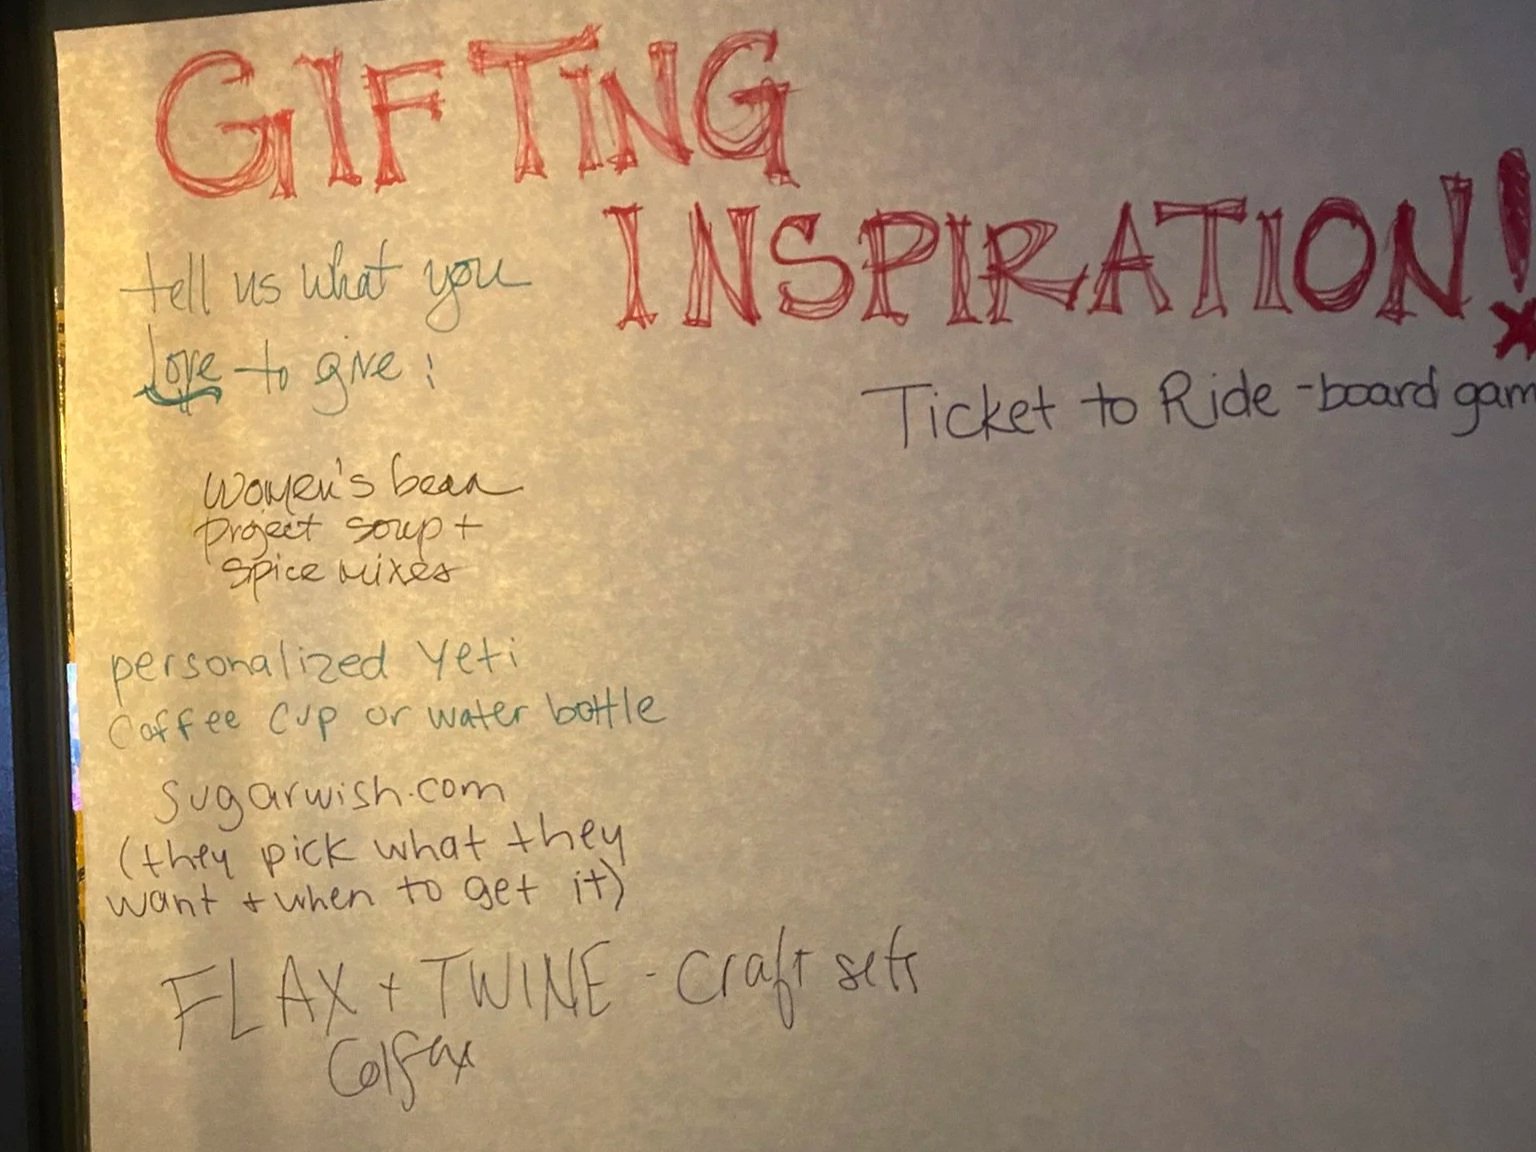 GIFTING
INSPIRATION!
tell us what you
love to give:
Ticket to Ride - board gam
Women's bean
project soup +
spice mixes
personalized Yeti
Coffee Cup or water bottle
sugarwish.com
(they pick what they
want + when to get it)
FLAX + TWINE - craft sets
Colfax